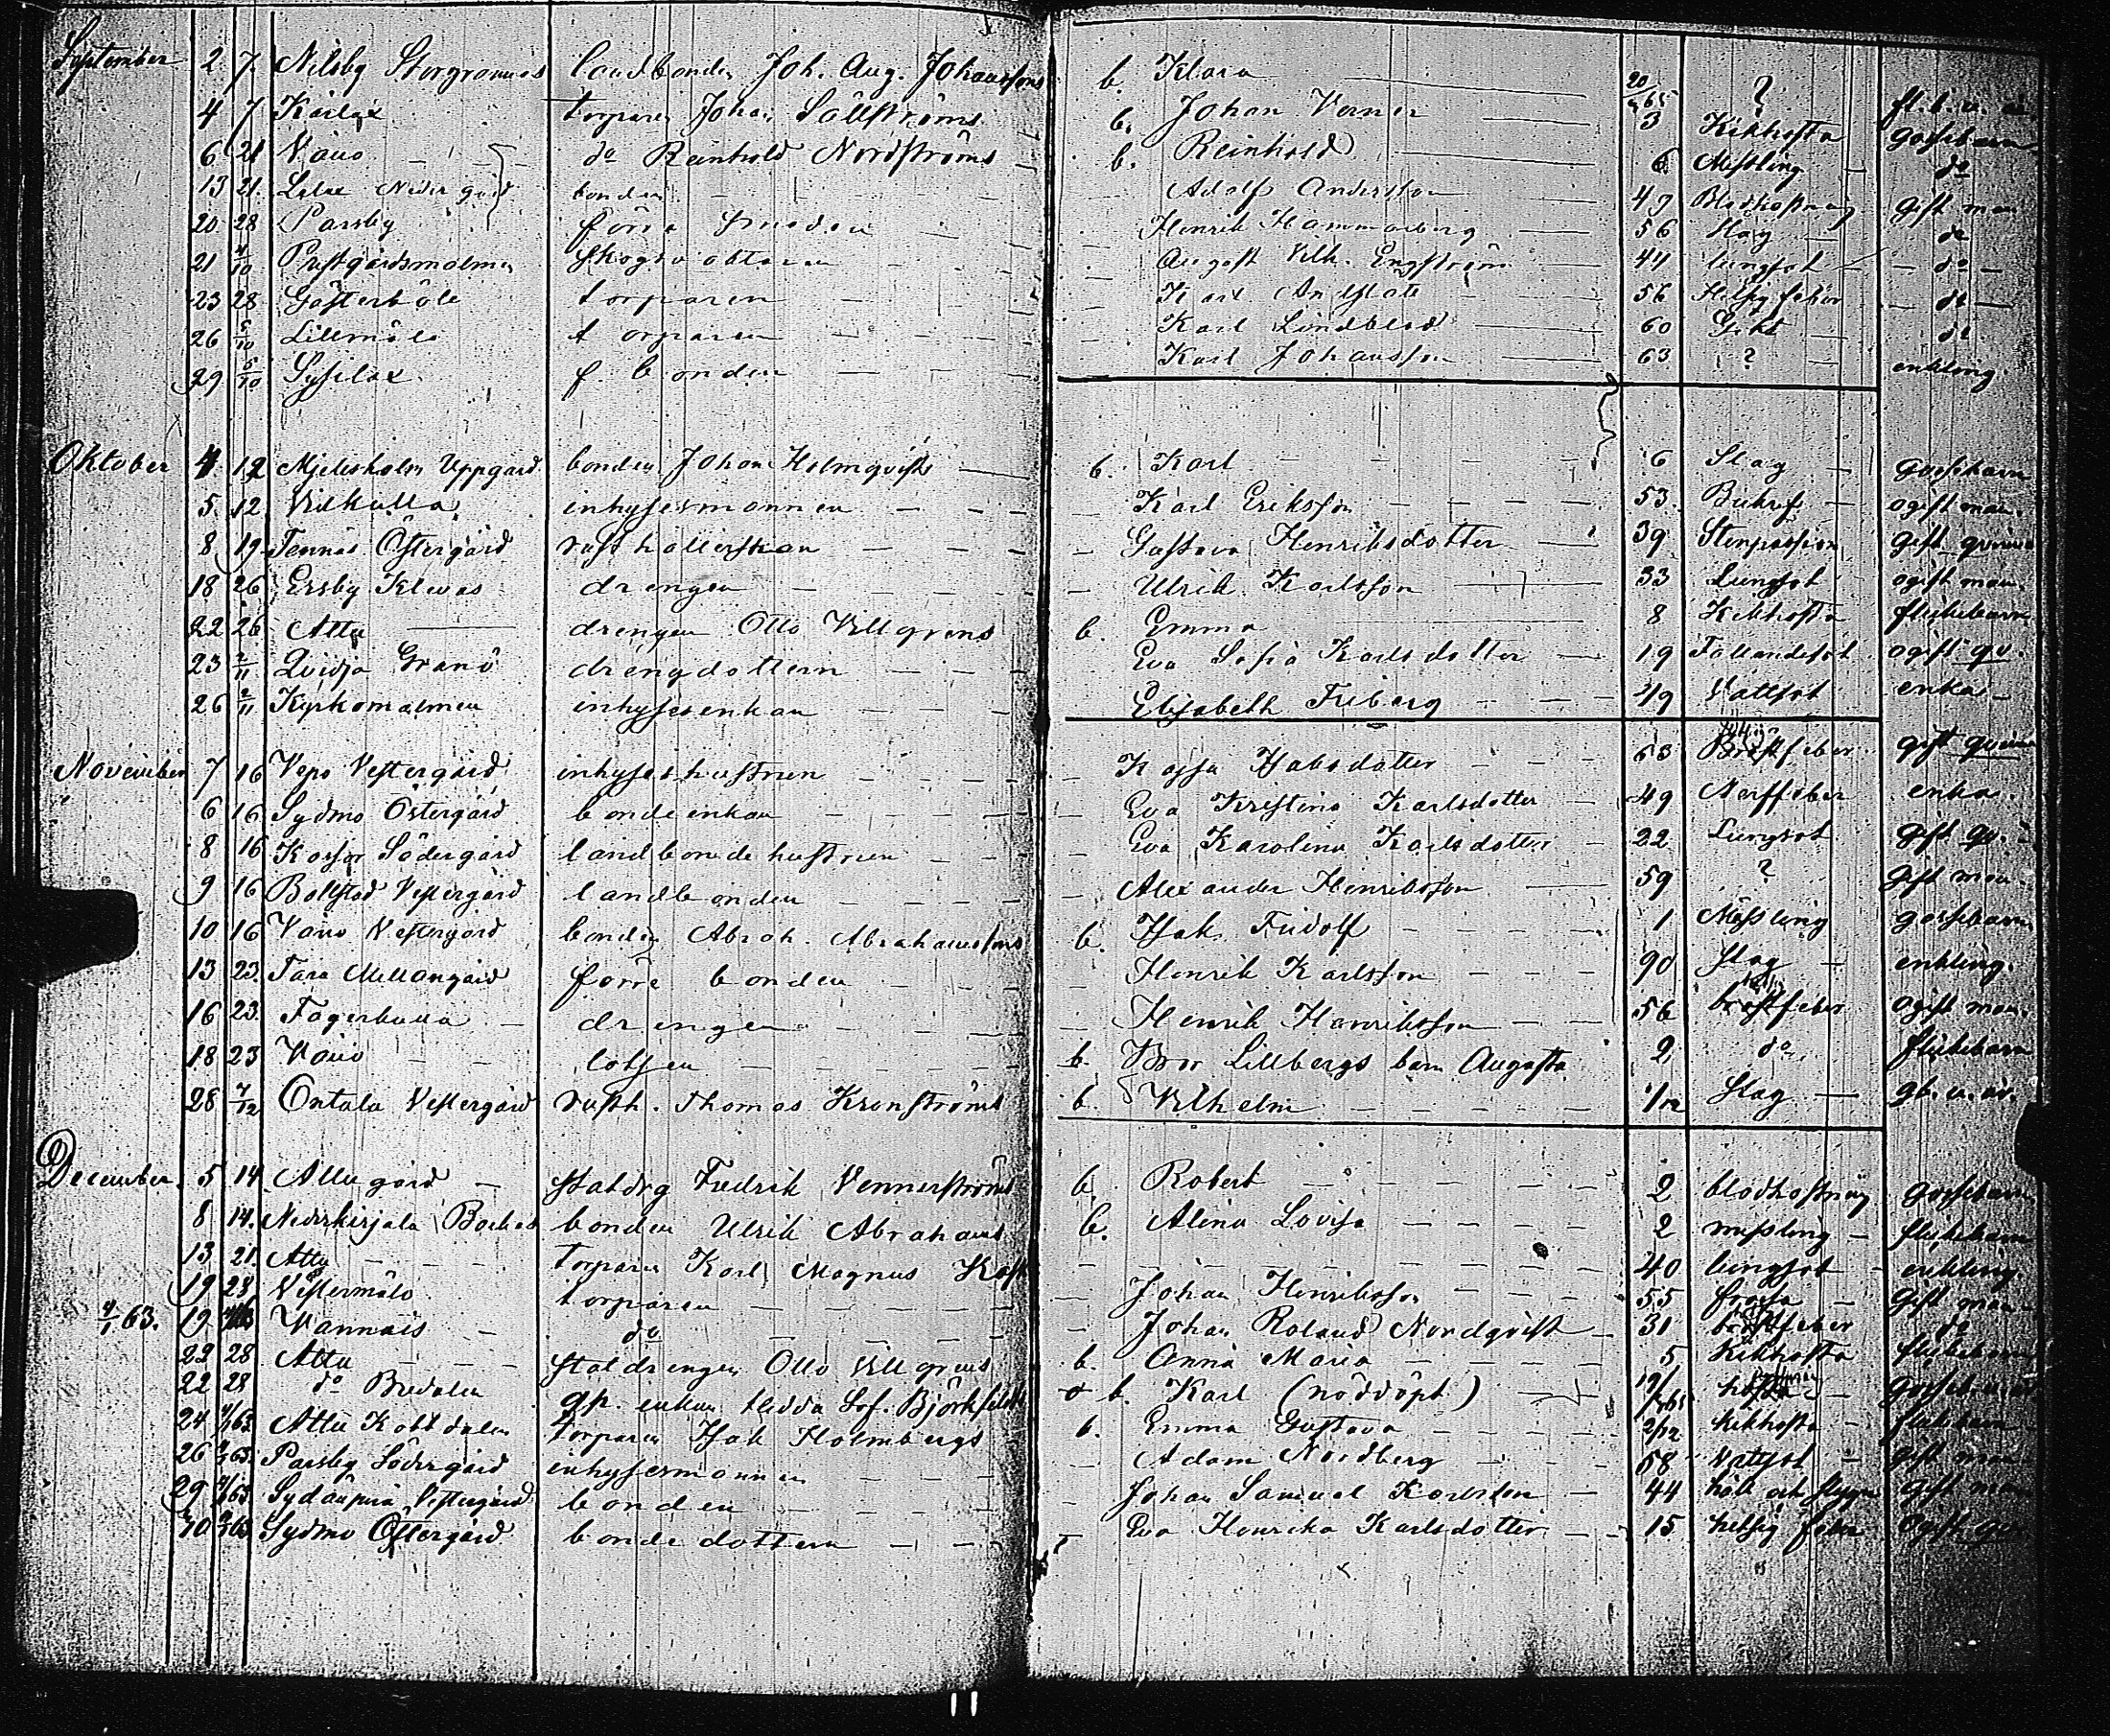 September 2 7. Nilsby Storgrannas landbonden Joh. Aug. Johanssons b. Klara 20/365 ? fl. b. u. å
4 7 Kärlax torparen Johan Sällströms b. Johan Verner 3 Kikhosta gossebarn
6 21 Vånö do Reinhold Nordströms b. Reinhold 6 Messling do
13 21. Nedergård bonden Adolf Andersson 47 Blodhostning Gift man
20 28 Parsby förre smeden Henrik Hammarberg 56 Slag do
21 4/10 Prestgårdsmalmen skogsvaktaren August Vilh. Engström 44 lungsot do
23 28 Gästerböle torparen Karl 56 Hetsig feber do
26 5/10 Lillmälö torparen Karl Lindblad 60 Gikt do
29 5/10 Sysilax f. bonden Karl Johansson 63 ? enkling
Oktober 4. 12 Mjelisholm Uppgård bonden Johan Holmqvists b. Karl 6 Slag Gossebarn
5. 12. Vilkulla inhysesmannen Karl Eriksson 53. Bukref ogift man.
8 19 Tennäs Östergård rusthållerskan Gustava Henriksdotter 39 Stenpassion gift qvinna
18 26 Ersby Klevas drengen Ulrik Karlsson 33 Lungsot ogift man
22 26 Attu drengen Otto Villgrens b. Emma 8 Kikhosta flickebarn
23 2/11 Qvidja Granö drengdottern Eva Sofia Karlsdotter 19 Fallandesot ogift qv.
26 2/11 Kyrkomalmen inhysesenkan Elisabeth Friberg 49 Vattsot enka
November 7 16 Vepo Vestergård inhyseshustrun Kajsa Isaksdotter 63 Bröstfeber gift qvinna
6 16 Sydmo Östergård bondeenkan Eva Kristina Karlsdotter 49 Nerffeber enka
8 16 Södergård landbondehustrun Eva Karolina Karlsdotter 22 Lungsot gift qv.
9 16 Bollstad Vestergård landbonden Alexander Henriksson 59 ? Gift man
10 16 Vånö Vestergård bonden Abrah. Abrahamssons b. Isak Fridolf 1 Messling gossebarn
13 23. Tara Mellangård förre bonden Henrik Karlsson 90 Slag enkling.
16 23. Fagerkulla drengen Henrik Henriksson 56 bröstfeber ogift man.
18 23 Vånö lotsen b. Bror Lillbergs barn Augusta 2 do flickebarn
28 7/12 Ontala Vestergård rusth. Thomas Kronströms b. Vilhelm 1/12 Slag gb. u. år.
December. 5 14. Attu gård statdrg Fredrik Vennerströms b. Robert 2 blodhostning gossebarn
8 14. Nederkirjala Bockas bonden Ulrik Abrahams b. Alina Lovisa 2 messling flickebarn
13 21. Attu torparen Karl Magnus 40 lungsot enkling.
19 28 Vestermälö torparen Johan Henriksson 55 frossa Gift man
4/1 63. 19 Vannais do Johan Roland Nordqvist 31 bröstfeber do
22 28 Attu statdrengen Otto Villgrens b. Anna Maria 5 Kikhosta flickebarn
22 28 do Bredalen gp. enkan Hedda Sof. b. Karl (nöddöpt) 19/365
24 4/1 63 Attu Kobbdalen torparen Isak Holmbergs b. Emma Gustava 2/12 Kikhosta flickebarn
26 63. Parsby Södergård inhysesmannen Adam Nordberg 58 Vattsot gift man
29 4/1 63 Vestergård bonden Johan Samuel Karlsson 44 håll och stygn gift man
63 Sydmo Östergård bondedottern Eva Henrika Karlsdotter 15 hetsig feber Ogift qv
11